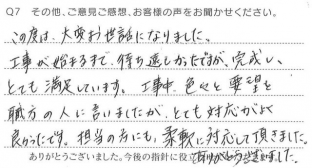 Q7 その他、ご意見ご感想、お客様の声をお聞かせください。
この度は、大変お世話になりました。
工事が始まるまで、待ち遠しかったですが、完成し、
とても満足しています。工事中、色々と要望を
職方の人に言いましたが、とても対応がよく
良かったです。担当の方にも、柔軟に対応して頂きました。
ありがとうございました。今後の指針に役 ありがとうございました。